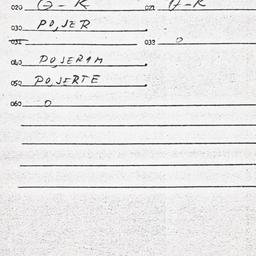 020 Q-R 021 4-R
030 POJER
031 033 0
040 DOJERAM
050 POJERTE
060 0